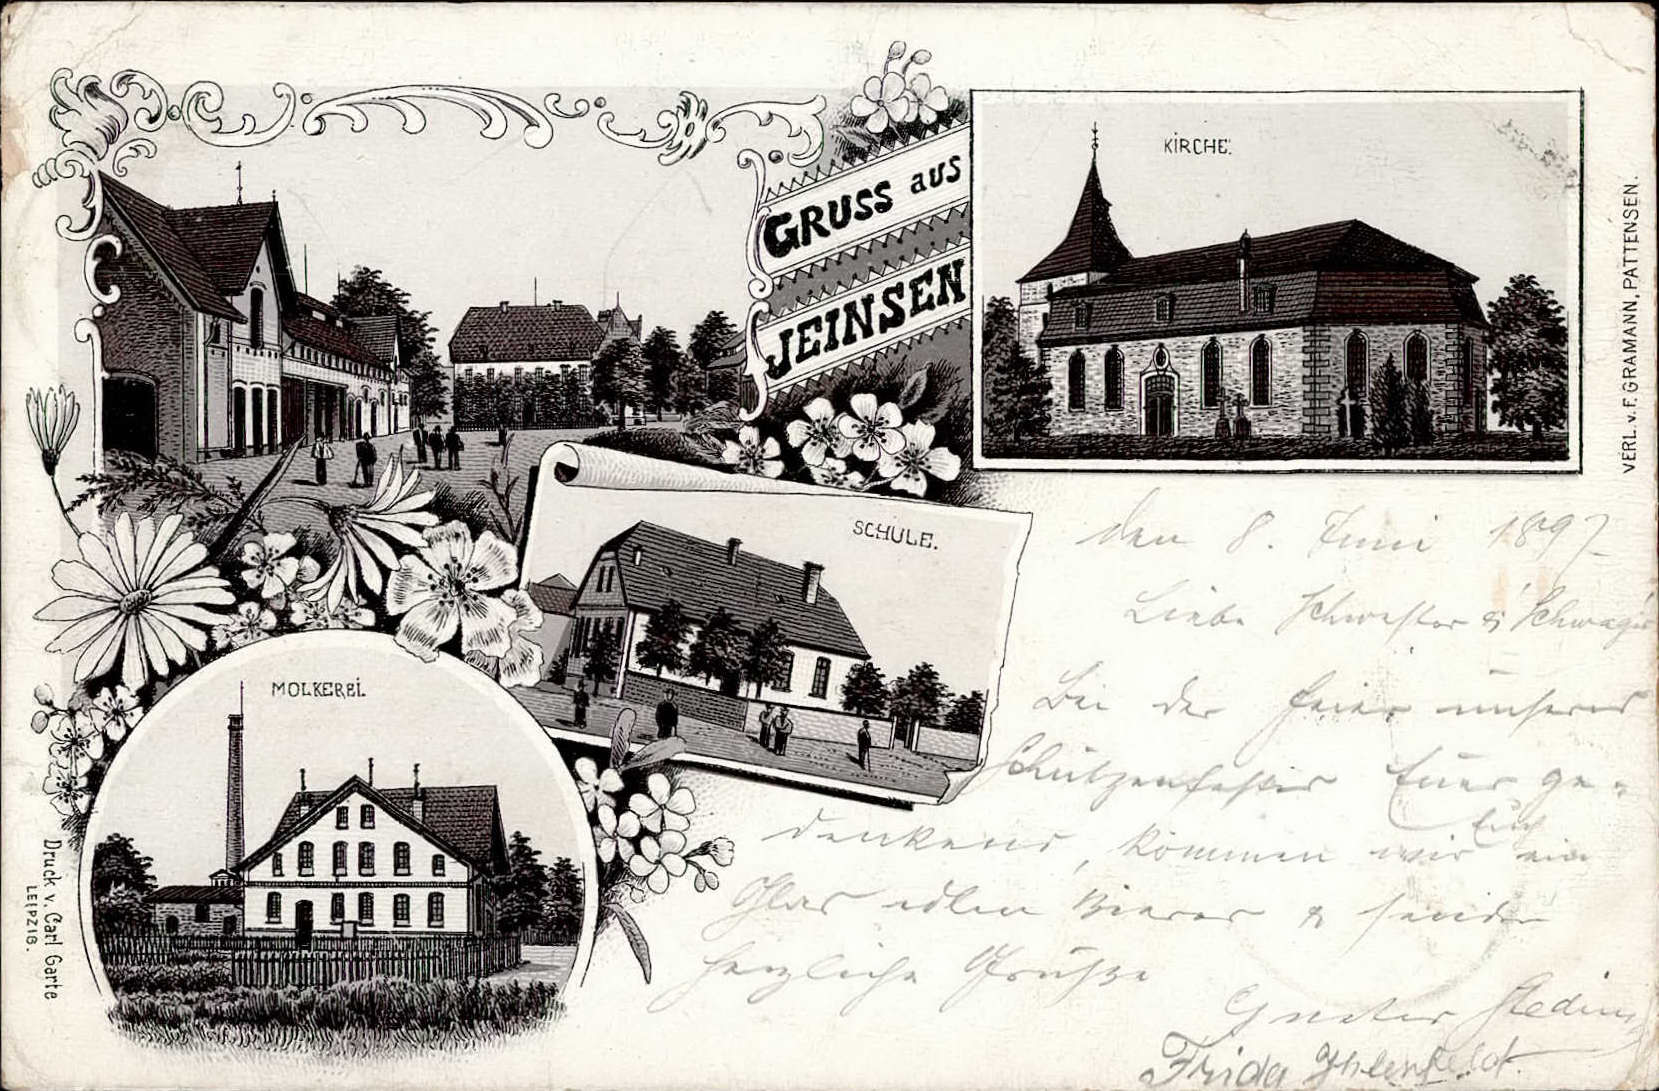 GRUSS aus
JEINSEN
KIRCHE.
SCHULE.
MOLKEREI.
VERL. v. F. GRAMANN, PATTENSEN.
Druck v. Carl Garte
LEIPZIG.
den 8. Juni 1897
Liebe Schwester & Schwager
Bei der Feier unseres
Schützenfestes Euer ge-
denkend, kommen wir Euch ein
Glas edlen Bieres & senden
herzliche Grüße
Frida Ihlenfeldt